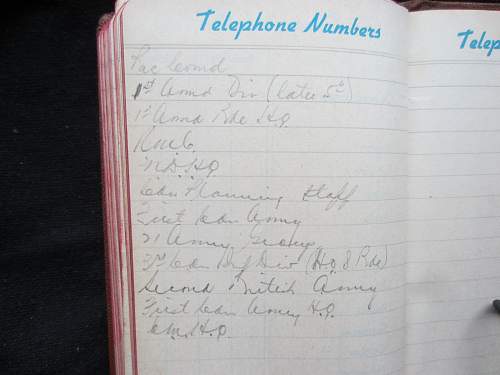 Telephone Numbers
Telep
Pac Comd
1st Armd Div (later 5th)
1st Armd Bde H.Q.
R.M.C.
N.D.H.Q.
Can Planning Staff
First Can Army
21 Army Group
3rd Can Inf Div (H.Q. 8 Bde)
Second British Army
First Can Army H.Q.
H.Q.